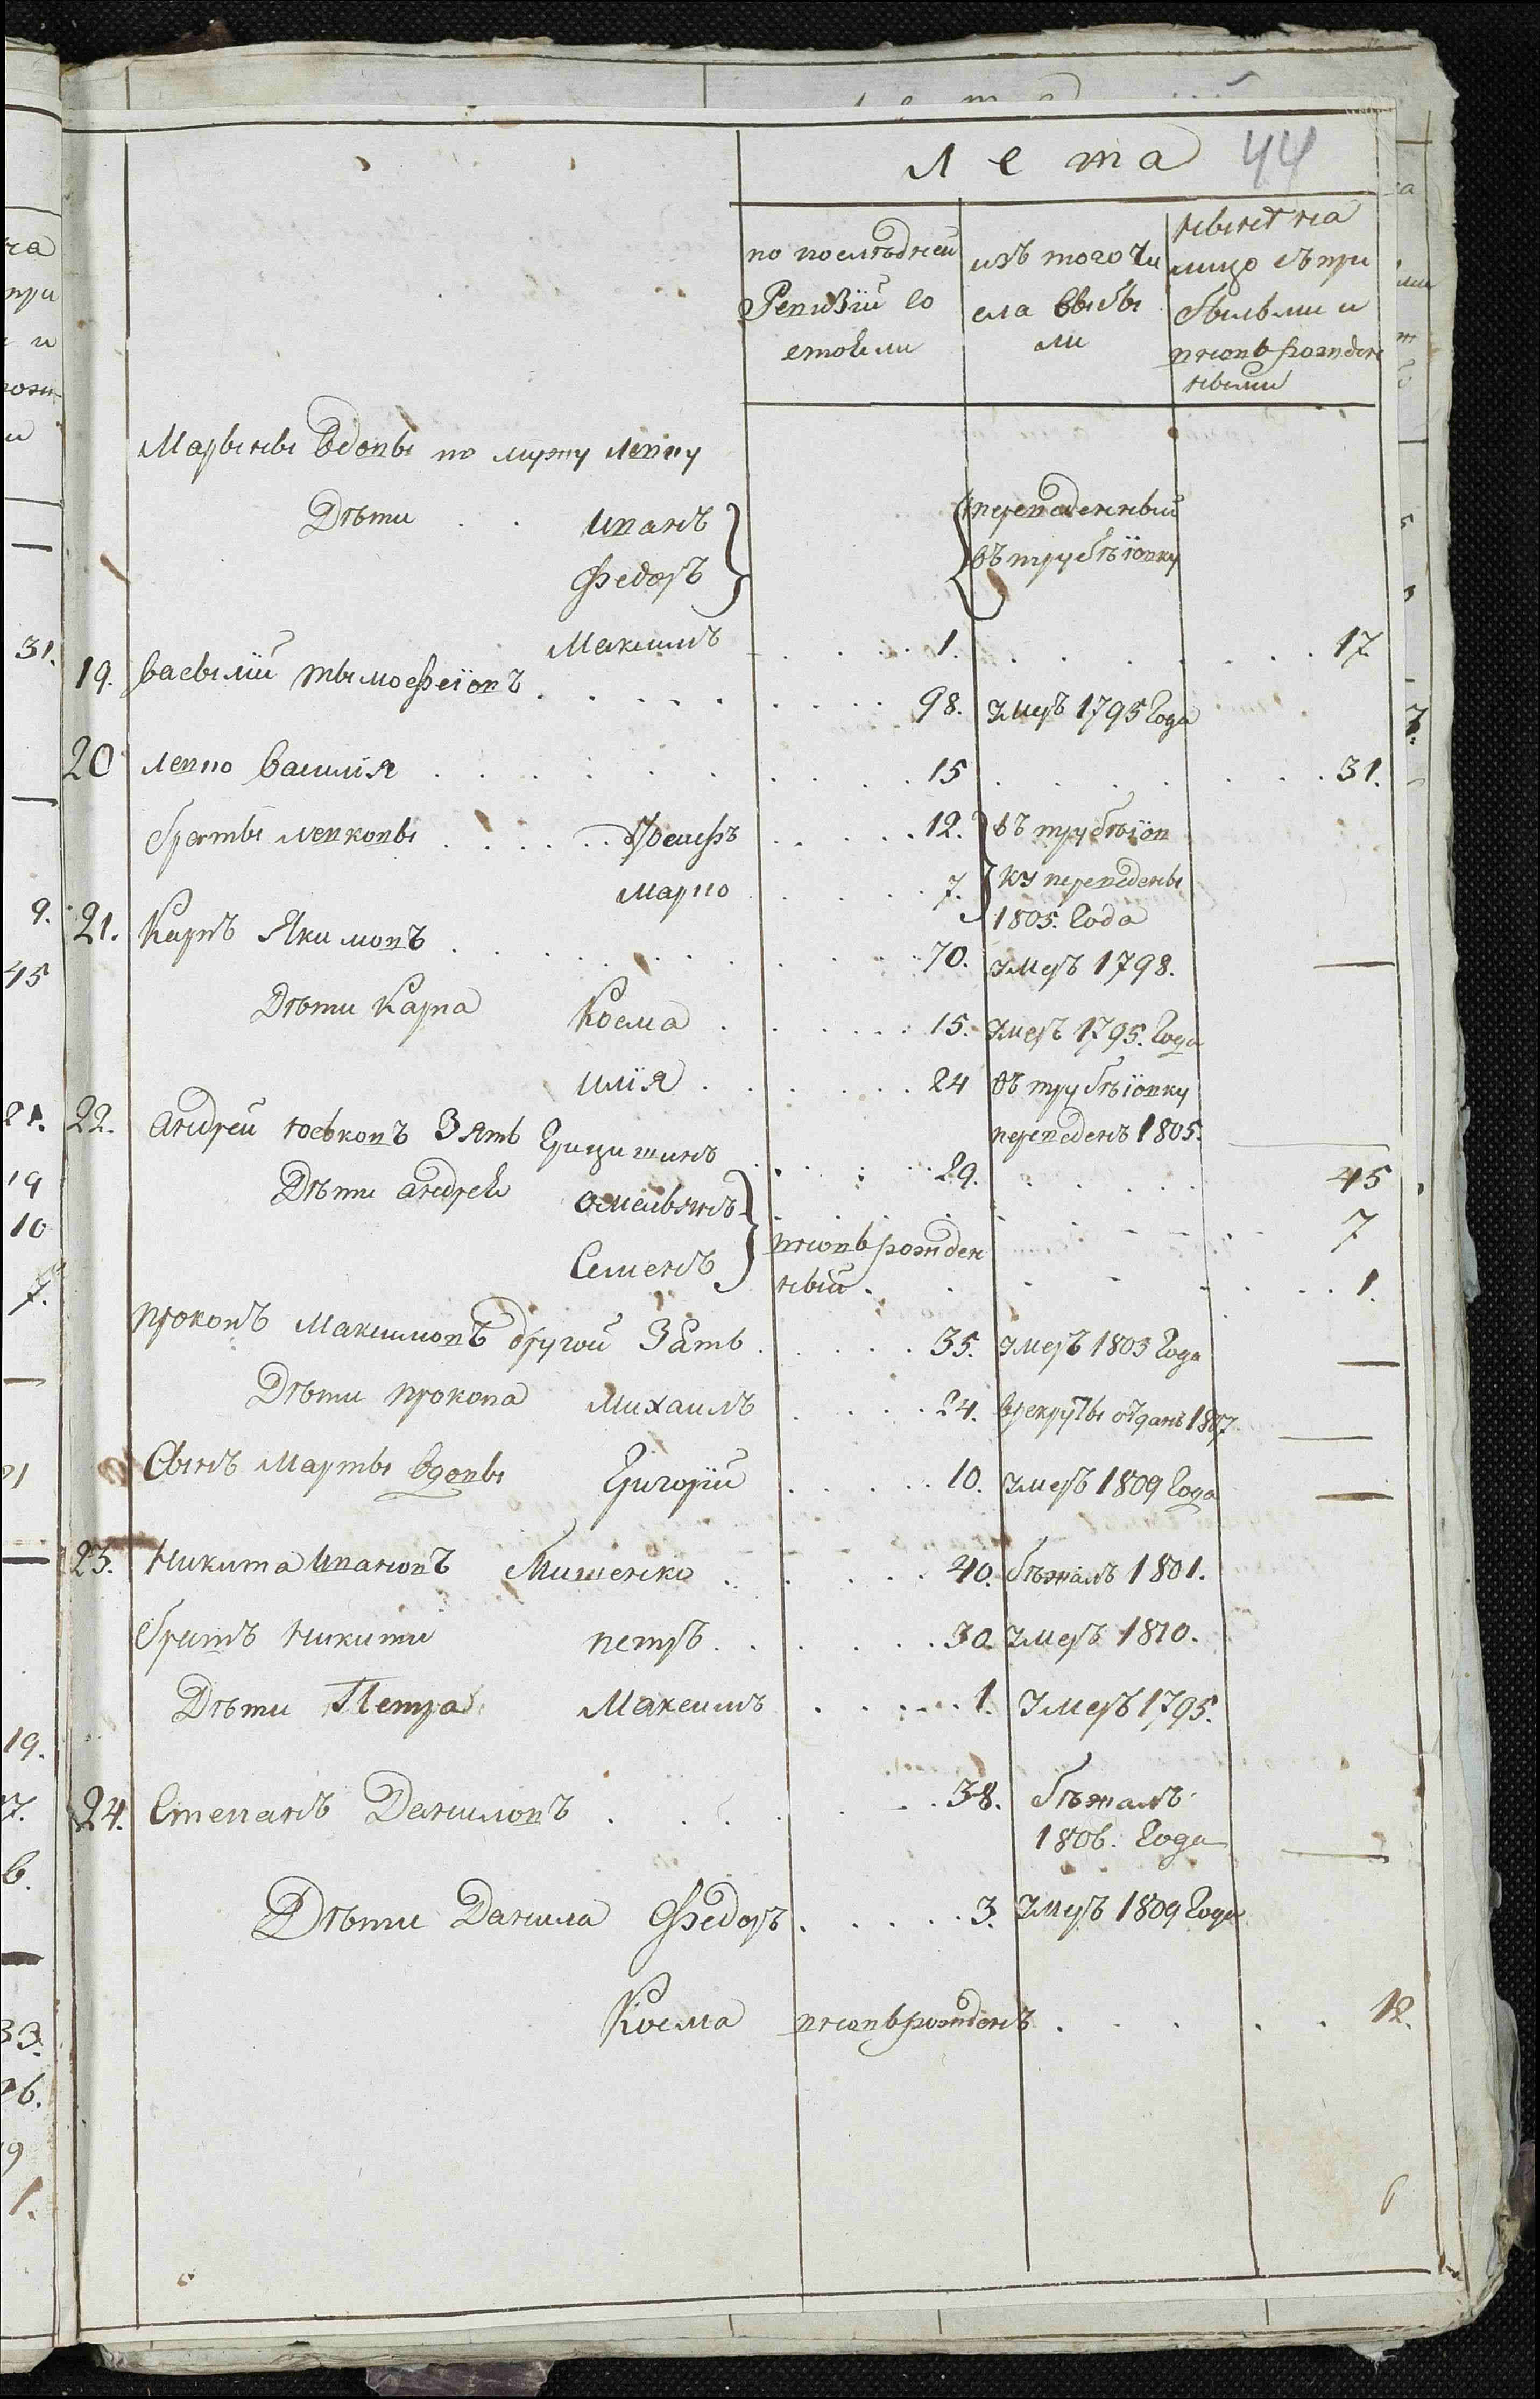 Лета 44
по последней
Ревизїи со
стояли
изъ того чи
сла выбы
ли
ныне на
лицо съ при
былыми и
вновь рожден
ными
Марьины вдовы по мужу левку
Дѣти . . иванъ
Федоръ
переведенный
въ трубѣїовку
Максимъ . . . . 1. . . . . . . 17
19. васылїй тымоѳеїовъ . . . . . . . 98. умеръ 1795 года
20 левко василїя . . . . . . . . 15 . . . . . 31.
браты левковы . . . . . Їосифъ . . . . 12. въ трубѣїов
марко . . . . 7. ку переведены
1805. года
21. Карпъ Якимовъ . . . . . . . . 70. умеръ 1798. —
Дѣти Карпа Косма . . . . . 15. умеръ 1795. года
илїя . . . . . 24 въ трубѣїовку
переведенъ 1805. —
22. андрей юсковъ Зять Грицишинъ . . . . 29. . . . . . 45
Дѣти андрея омельянъ . . . . . . . . . 7
Семенъ вновь рожден
ный . . . . . . . 1.
прокопъ Максимовъ другой Зять . . . . 35. умеръ 1803 года —
Дѣти прокопа Михаилъ . . . . 24. врекруты отданъ 1807 —
Сынъ Марты вдовы Григорїй . . . . . 10. умеръ 1809 года —
23. никита ивановъ Мишенко . . . . . 40. бѣжалъ 1801.
братъ никити петръ . . . . . . 30. умеръ 1810.
Дѣти Петра Максимъ . . . . . 1. умеръ 1795.
24. Степанъ Даниловъ . . . . . . . 38. бѣжалъ
1806. года —
Дѣти Данила Федоръ . . . . . 3. умеръ 1809 года
Косма вновьрожденъ . . . . . . 12.